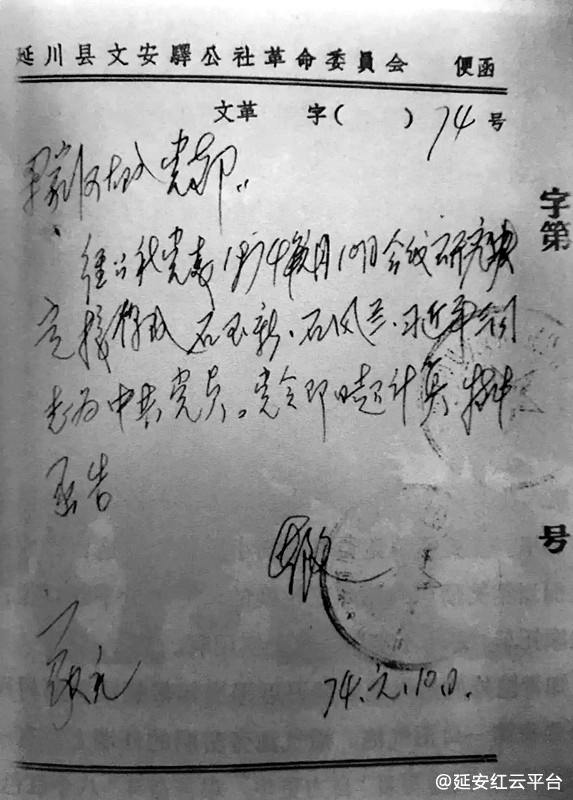 延川县文安驛公社革命委員会 便函
文革 字( ) 74 号
梁家河大队党支部:
经公社党委1974年元月10日会议研究决
定接收 石玉新、石风兰、习近平三同
志为中共党员。党令即日起计算 特此
函告
74.元.10日.
字第
号
@延安红云平台